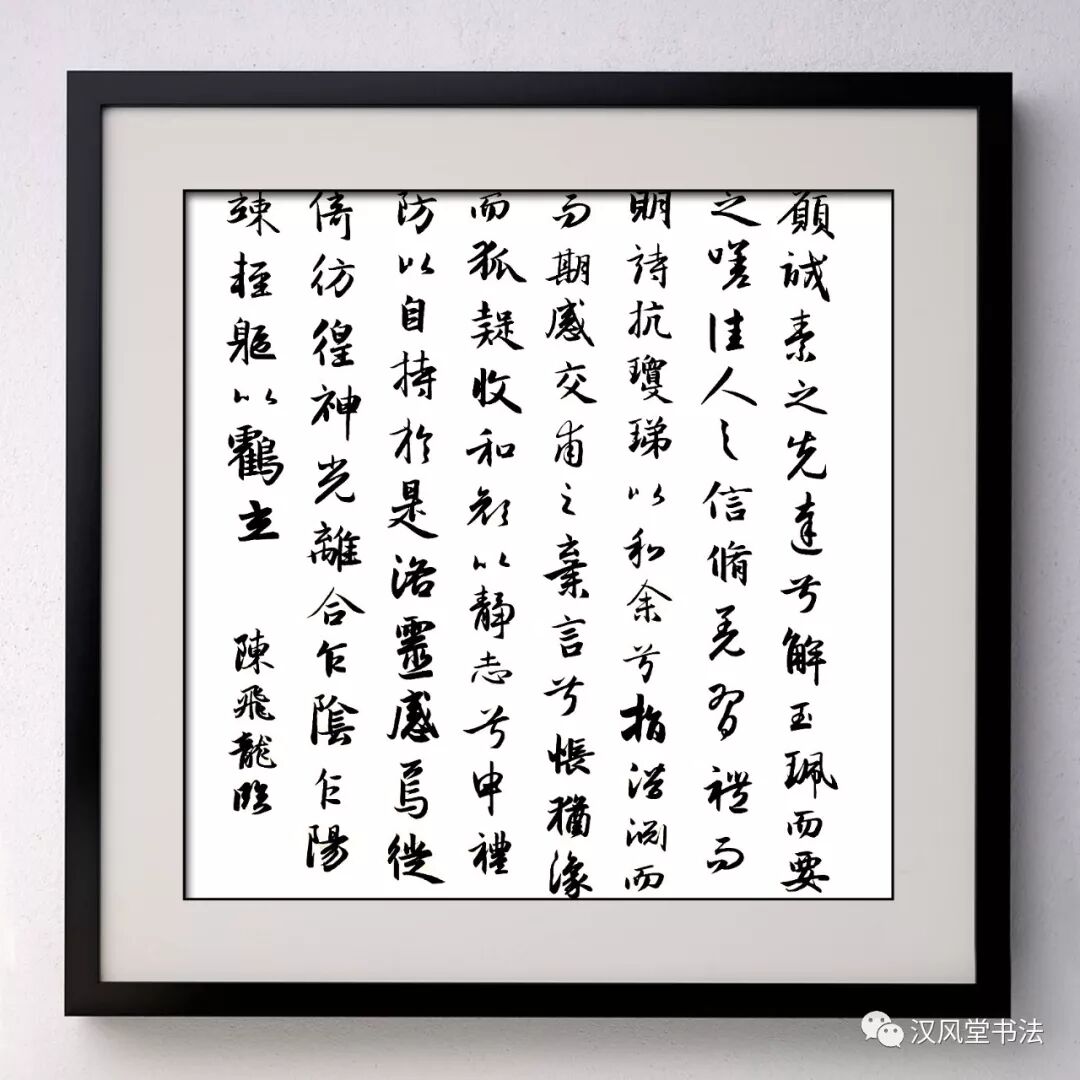 願誠素之先達兮解玉珮而要
之嗟佳人之信脩羌習禮而
明詩抗瓊珶以和余兮指潛淵而
為期感交甫之棄言兮悵猶豫
而狐疑收和顏以靜志兮申禮
防以自持於是洛靈感焉徙
倚彷徨神光離合乍陰乍陽
竦輕軀以鶴立 陳飛龍臨
汉风堂书法